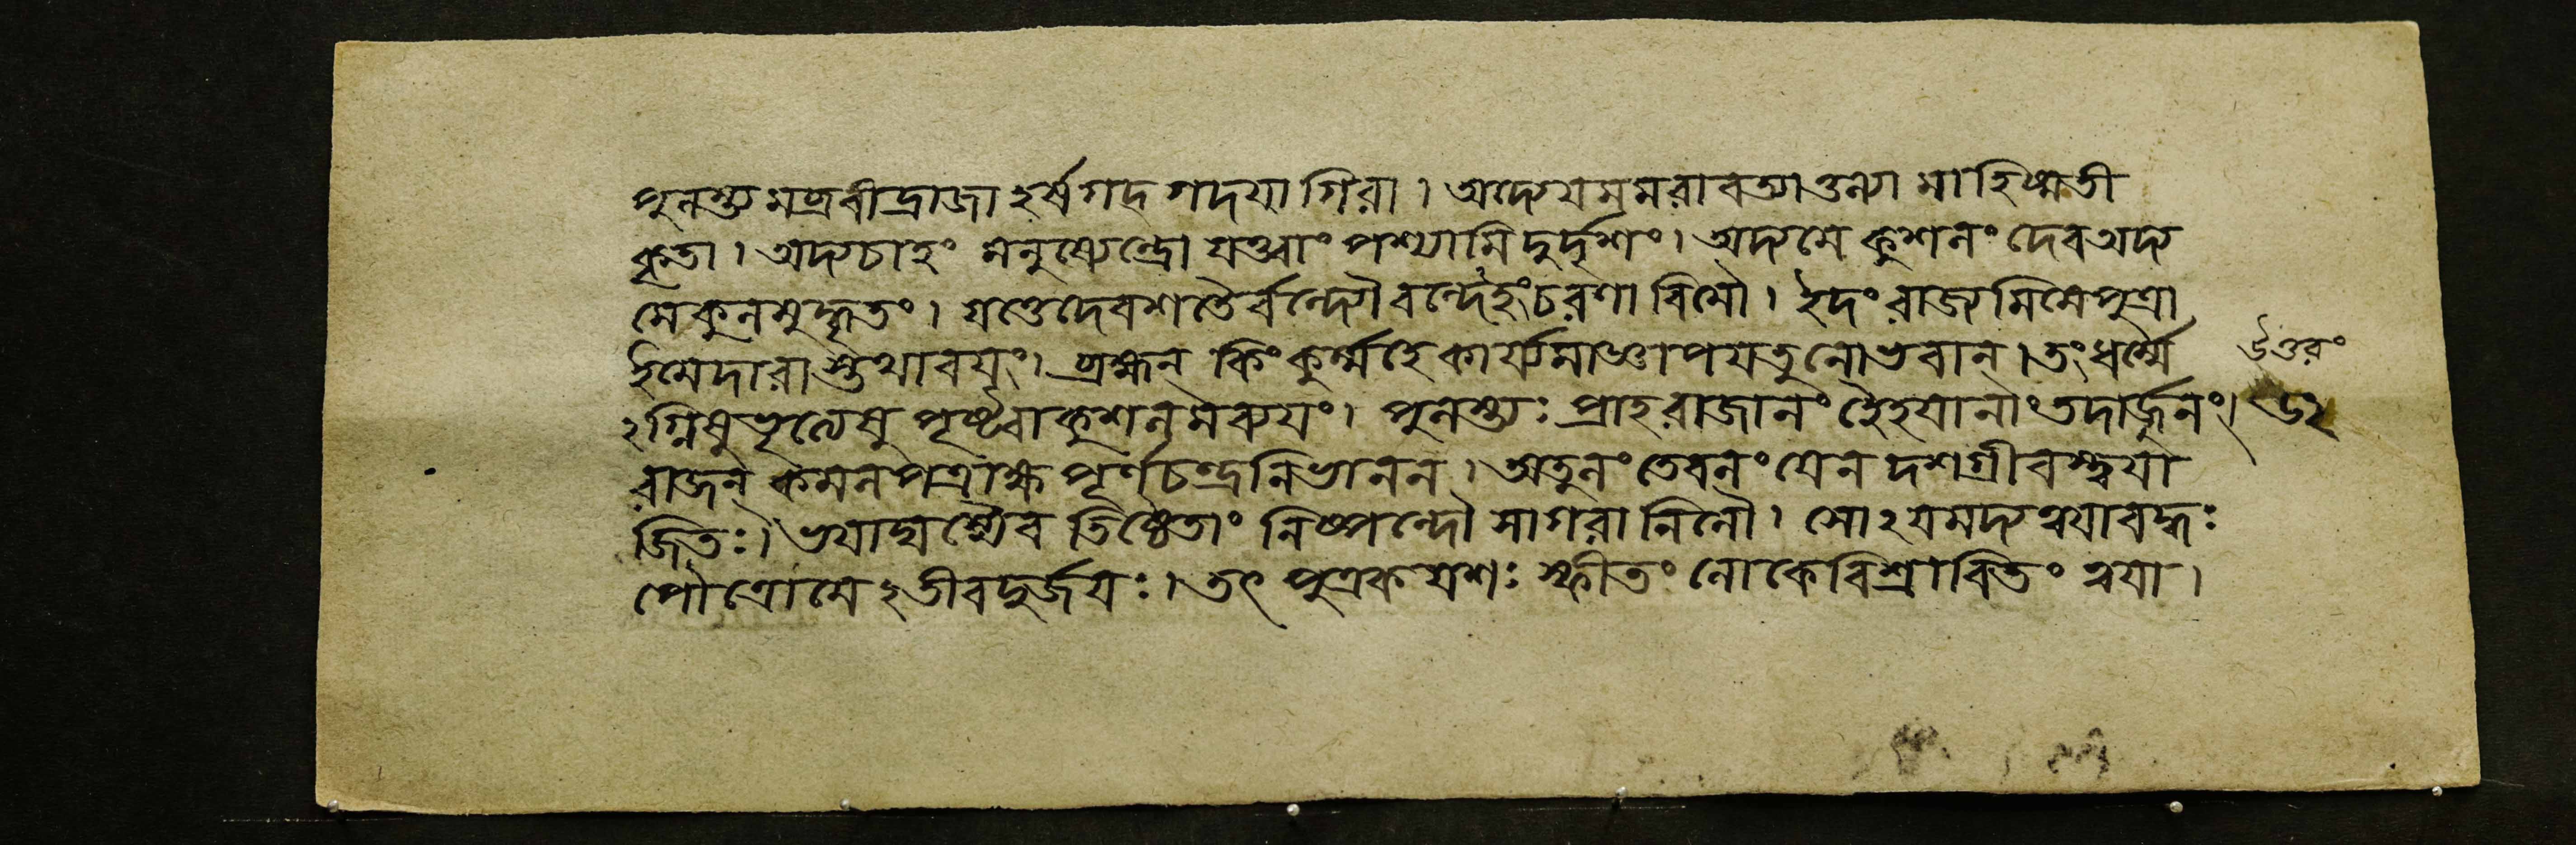 পুলস্ত্যমব্রবীদ্রাজা হর্ষগদ্গদয়া গিরা। অদ্যেয়মমরাবত্যাতুল্যা মাহিষ্মতী
কৃতা। অদ্যচাহং মনুষ্যেন্দ্রো যত্ত্বাং পশ্যামি দুর্দৃশং। অদ্যমে কুশলং দেব অদ্য
মে কুলমুদ্ধৃতং। যত্তে দেবশতৈর্ব্বন্দ্যৌ বন্দেহংচরণা বিমৌ। ইদং রাজ্যমিমেপুত্রা
ইমেদারাস্তথাবয়ং। ব্রহ্মন্ কিং কুর্ম্মহে কার্য্যমাজ্ঞাপয়তুনোভবান্। তংধর্ম্মে
হগ্নিষুভৃত্যেষু পৃষ্ট্বাকুশলমব্যয়ং। পুলস্ত্যঃ প্রাহরাজানং হৈহয়ানাং তদার্জুনং।
রাজন্ কমলপত্রাক্ষ পূর্ণচন্দ্রনিভানন। অতুলং তেবলং যেন দশগ্রীবস্ত্বয়া
জিতঃ। ভয়াদ্যস্যৈব তিষ্ঠেতাং নিষ্পন্দৌ সাগরানিলৌ। সোহয়মদ্য ত্বয়াবদ্ধঃ
পৌত্রোমে হতীবদুর্জয়ঃ। তৎ পুত্রক যশঃ স্ফীতং লোকেবিশ্রাবিতং ত্বয়া।
উত্তরং